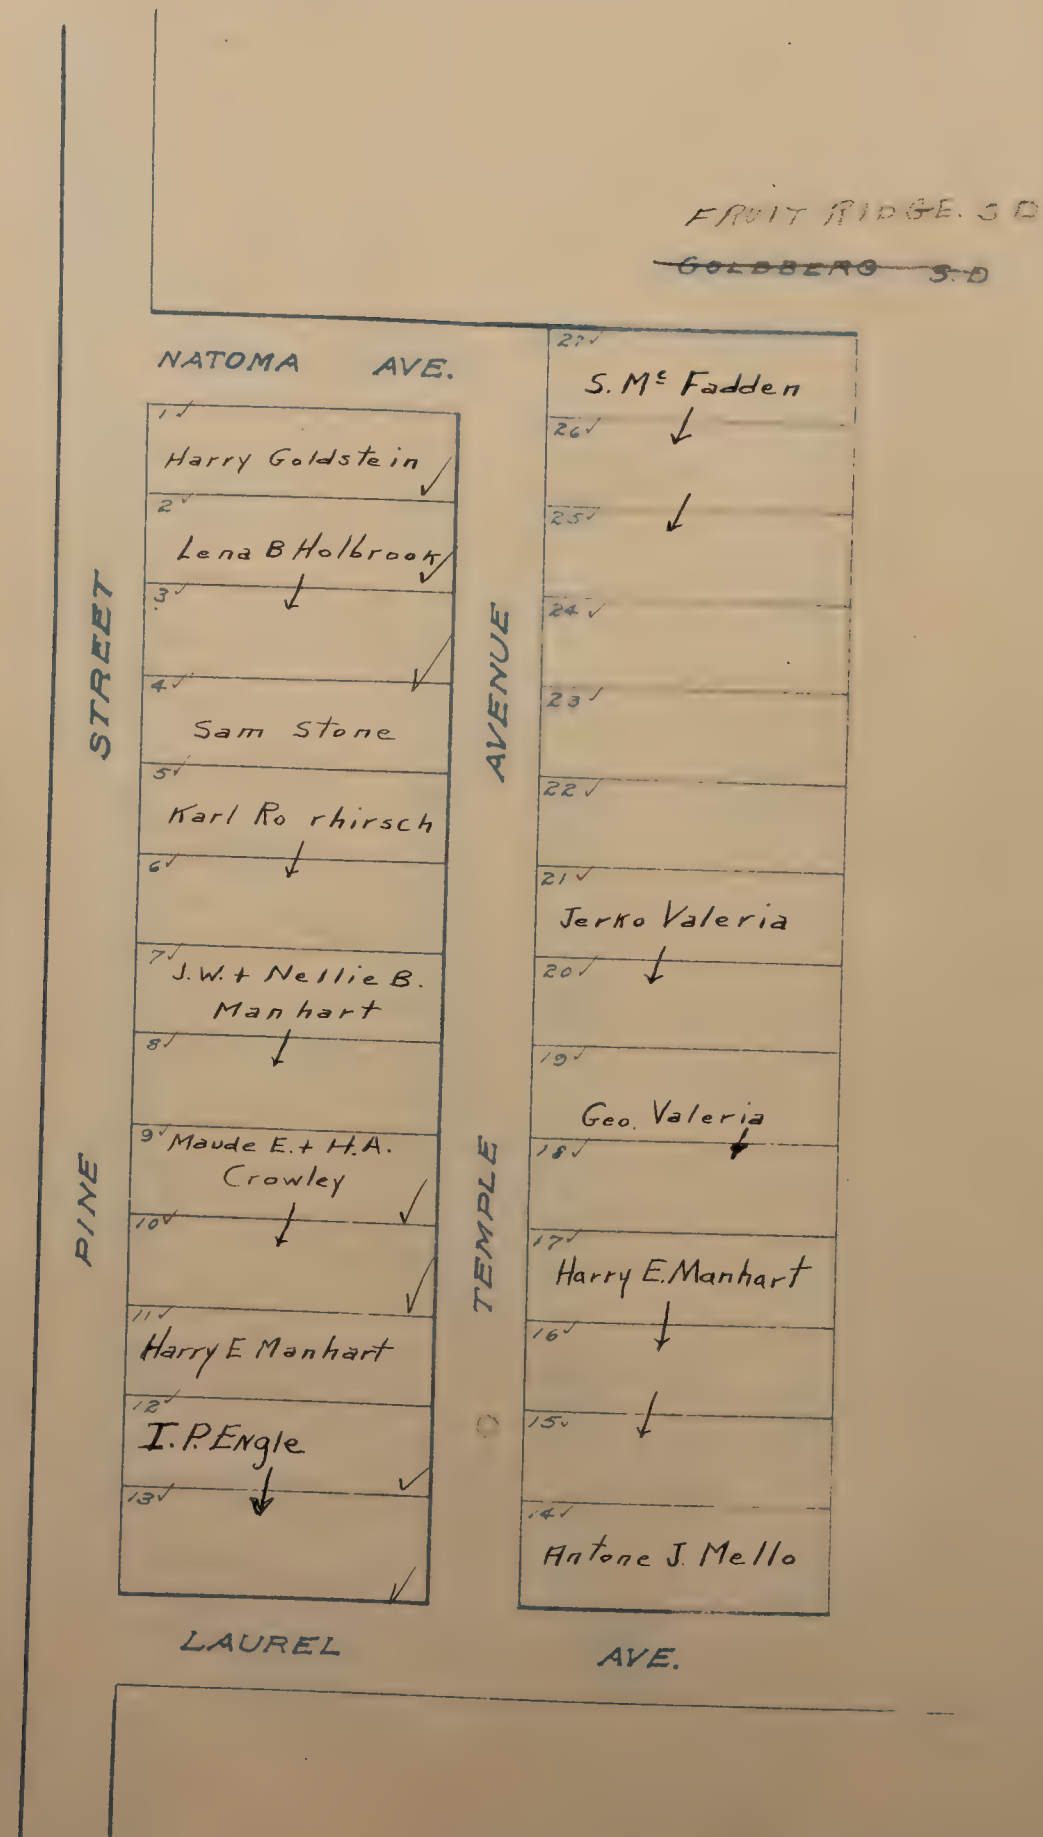 FRUIT RIDGE. S D
GOLDBERG S.D
NATOMA AVE.
1✓
Harry Goldstein ✓
2✓
Lena B Holbrook ✓
3✓
✓
4✓
Sam Stone
5✓
Karl Ro rhirsch
6✓
7✓
J.W. + Nellie B.
Manhart
8✓
9✓ Maude E. + H.A.
Crowley ✓
10✓
✓
11✓
Harry E Manhart
12✓
I.P. Engle ✓
13✓
✓
PINE STREET
TEMPLE AVENUE
27✓
S. Mc Fadden
26✓
25✓
24✓
23✓
22✓
21✓
Jerko Valeria
20✓
19✓
Geo. Valeria
18✓
17✓
Harry E. Manhart
16✓
15✓
14✓
Antone J. Mello
LAUREL AVE.